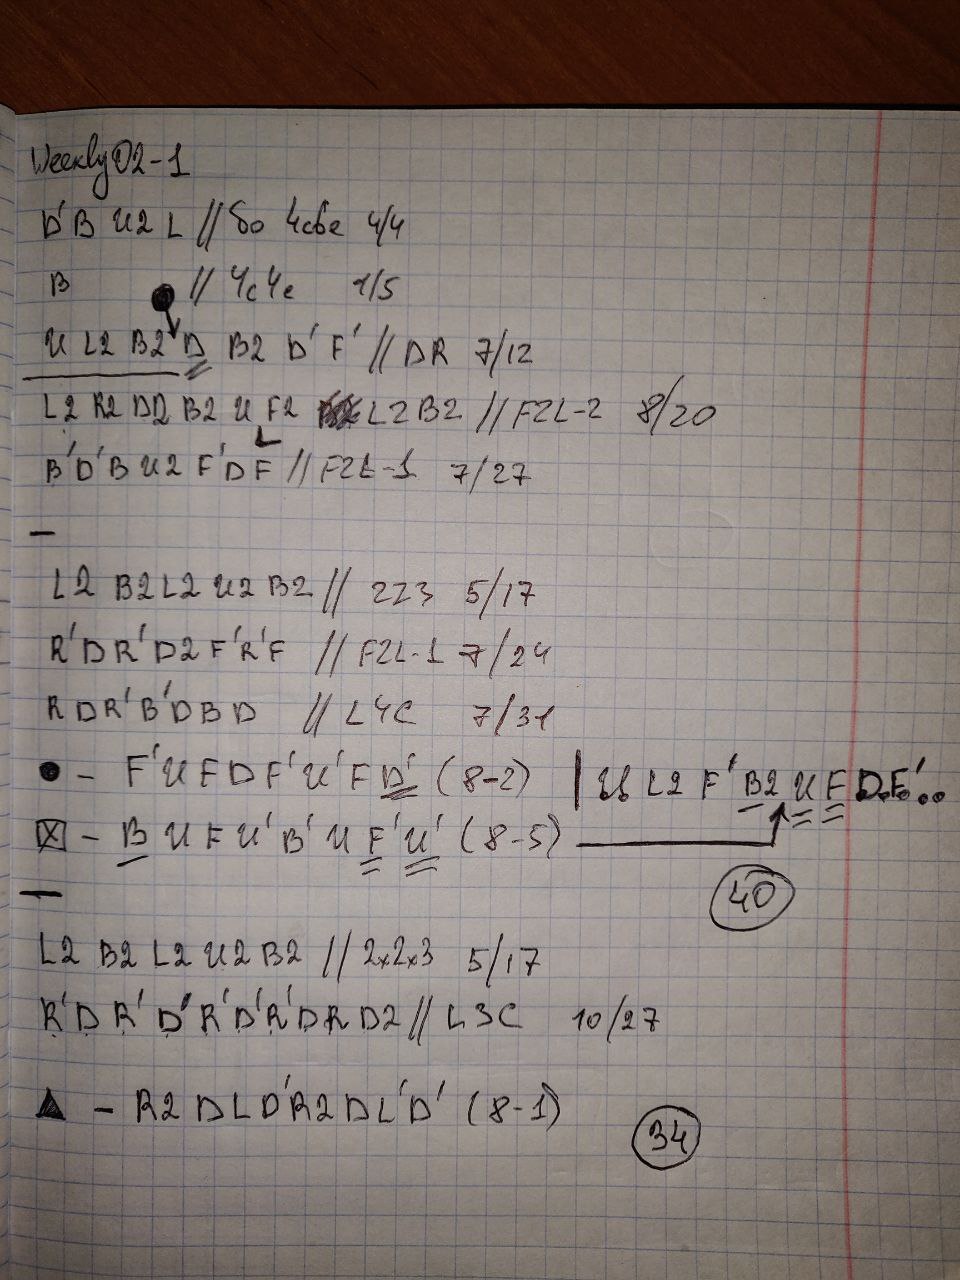 Weekly 02-1
D' B U2 L // до 4c8e 4/4
B // 4c4e 1/5
U L2 B2 D B2 D' F' // DR 7/12
L2 R2 D2 B2 U F2 L2 B2 // F2L-2 8/20
B' D' B U2 F' D F // F2L-1 7/27
—
L2 B2 L2 U2 B2 // 223 5/17
R' D R' D2 F' R' F // F2L-1 7/24
R D R' B' D B D // L4C 7/31
● - F' U F D F' U' F D' (8-2) | U L2 F' B2 U F D.F.'..
☒ - B U F U' B' U F' U' (8-5)
40
—
L2 B2 L2 U2 B2 // 2x2x3 5/17
R' D R' D' R' D' R' D R D2 // L3C 10/27
▲ - R2 D L D' R2 D L' D' (8-1)
34